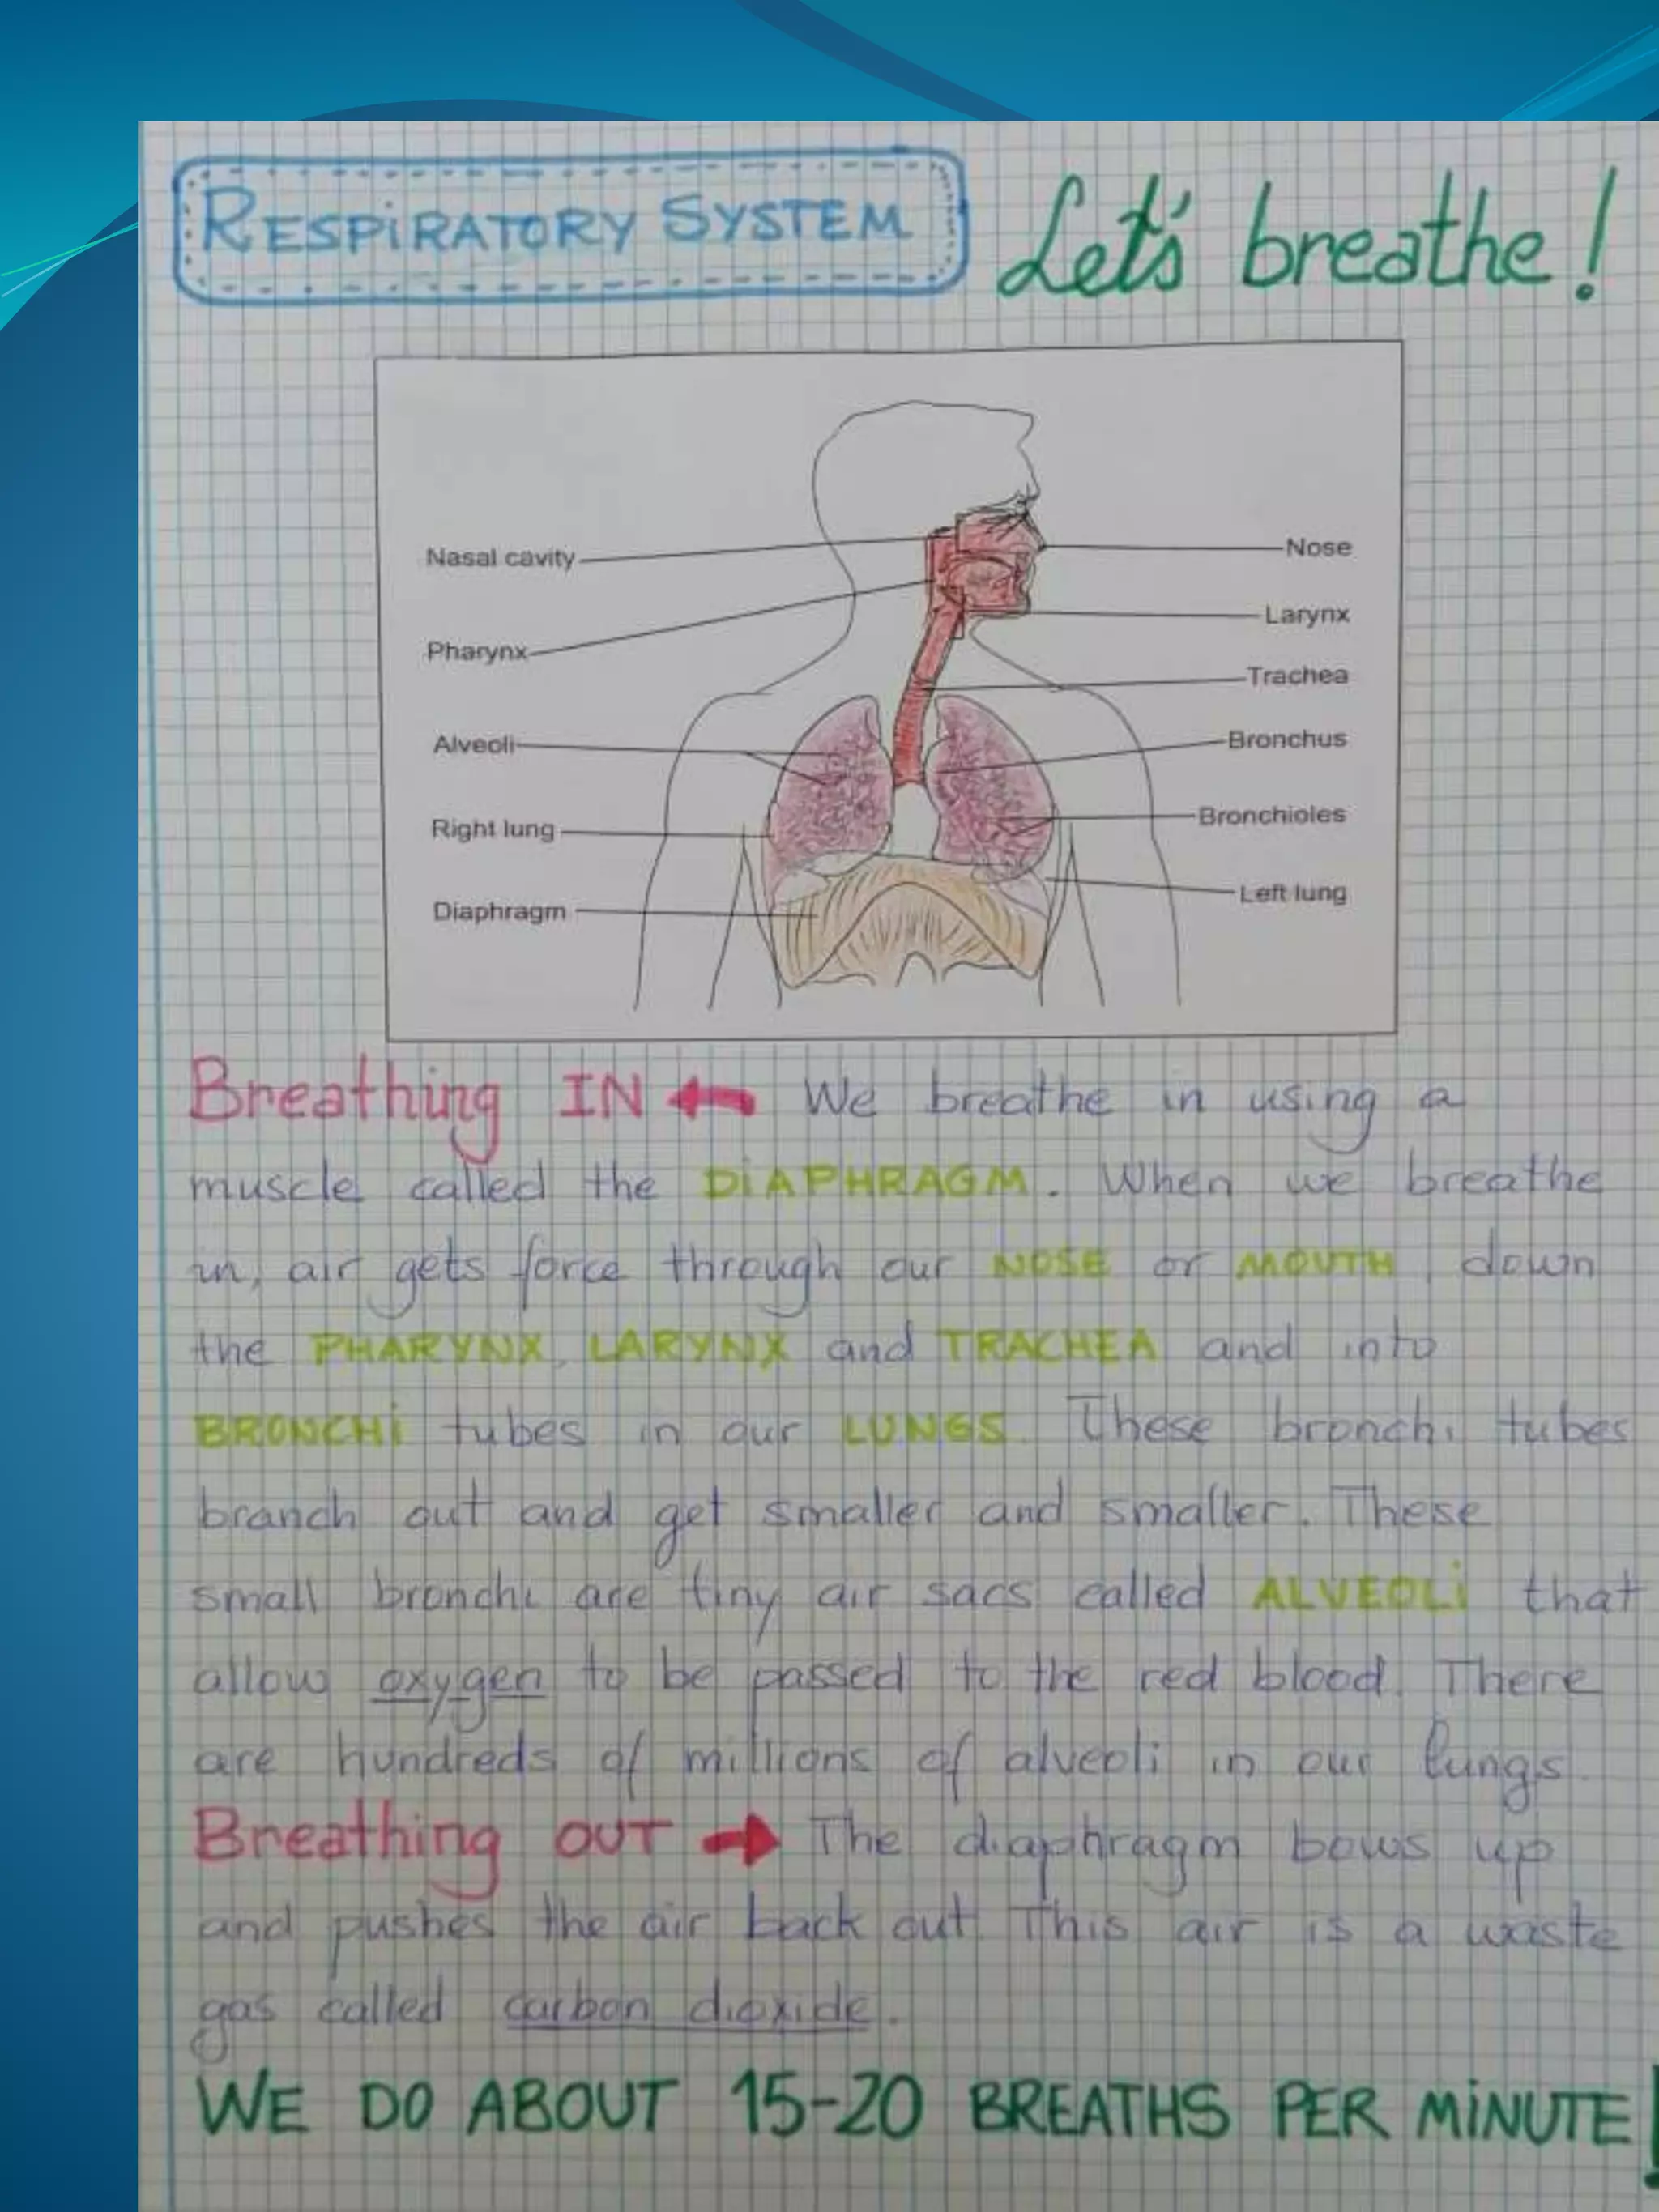 RESPiRATORY SYSTEM Let's breathe!
Nasal cavity Nose
Pharynx Larynx
Trachea
Alveoli Bronchus
Right lung Bronchioles
Diaphragm Left lung
Breathing IN ← We breathe in using a
muscle called the DiAPHRAGM. When we breathe
in, air gets force through our NOSE or MOUTH, down
the PHARYNX, LARYNX and TRACHEA and into
BRONCHi tubes in our LUNGS. These bronchi tubes
branch out and get smaller and smaller. These
small bronchi are tiny air sacs called ALVEOLi that
allow oxygen to be passed to the red blood. There
are hundreds of millions of alveoli in our lungs.
Breathing OUT → The diaphragm bows up
and pushes the air back out. This air is a waste
gas called carbon dioxide.
WE DO ABOUT 15-20 BREATHS PER MiNUTE!